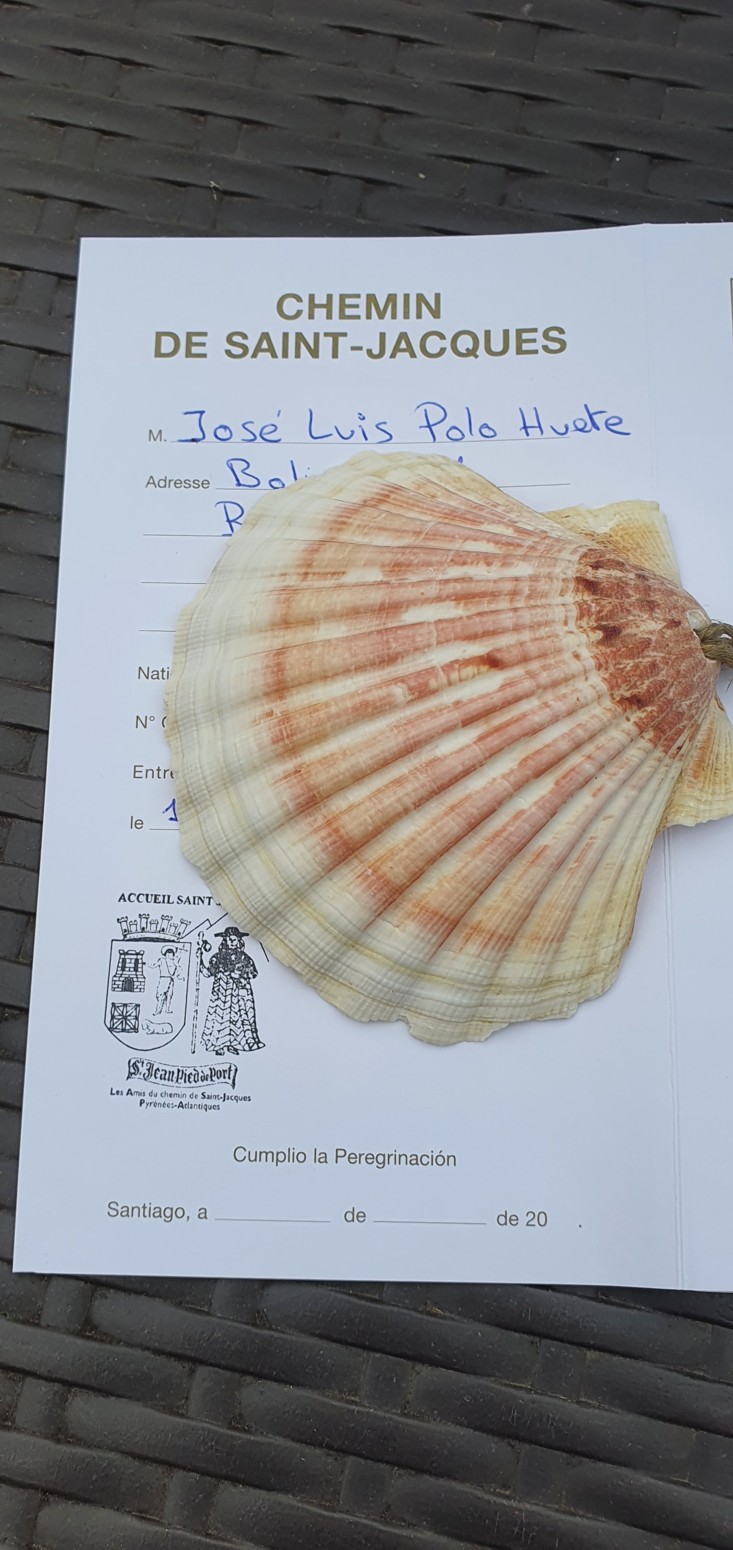 CHEMIN
DE SAINT-JACQUES
M. José Luis Polo Huete
Adresse
le
ACCUEIL SAINT
St Jean Pied de Port
Les Amis du chemin de Saint-Jacques
Pyrénées-Atlantiques
Cumplio la Peregrinación
Santiago, a de de 20 .